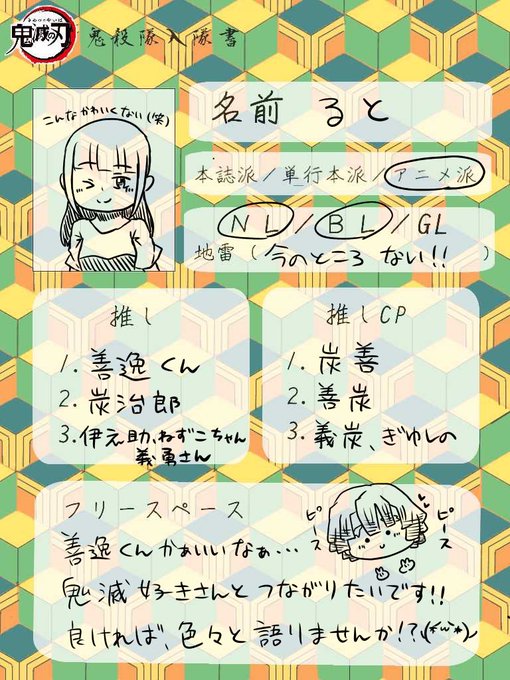 きめつのやいば
鬼滅の刃
鬼殺隊入隊書
こんなかわいくない(笑)
名前 ると
本誌派/単行本派/アニメ派
NL/BL/GL
地雷(今のところない!!)
推し
1. 善逸くん
2. 炭治郎
3. 伊之助、ねずこちゃん
義勇さん
推しCP
1. 炭善
2. 善炭
3. 義炭、ぎゆしの
フリースペース
ピース
ピース
善逸くんかぁいいなぁ...
鬼滅好きさんとつながりたいです!!
良ければ、色々と語りませんか!?(*´ω`*)